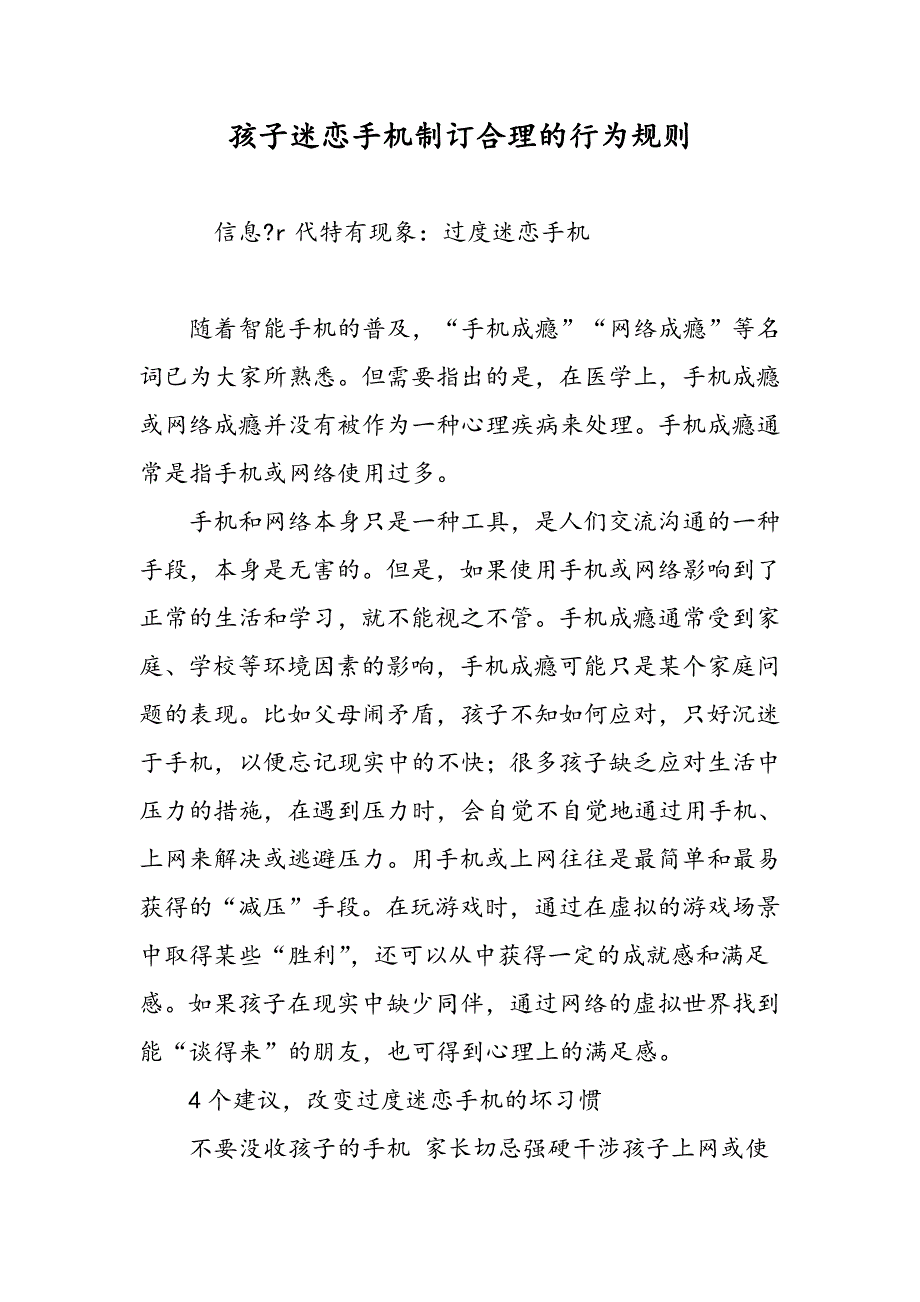 孩子迷恋手机制订合理的行为规则
信息?r 代特有现象：过度迷恋手机
随着智能手机的普及，“手机成瘾”“网络成瘾”等名
词已为大家所熟悉。但需要指出的是，在医学上，手机成瘾
或网络成瘾并没有被作为一种心理疾病来处理。手机成瘾通
常是指手机或网络使用过多。
手机和网络本身只是一种工具，是人们交流沟通的一种
手段，本身是无害的。但是，如果使用手机或网络影响到了
正常的生活和学习，就不能视之不管。手机成瘾通常受到家
庭、学校等环境因素的影响，手机成瘾可能只是某个家庭问
题的表现。比如父母闹矛盾，孩子不知如何应对，只好沉迷
于手机，以便忘记现实中的不快；很多孩子缺乏应对生活中
压力的措施，在遇到压力时，会自觉不自觉地通过用手机、
上网来解决或逃避压力。用手机或上网往往是最简单和最易
获得的“减压”手段。在玩游戏时，通过在虚拟的游戏场景
中取得某些“胜利”，还可以从中获得一定的成就感和满足
感。如果孩子在现实中缺少同伴，通过网络的虚拟世界找到
能“谈得来”的朋友，也可得到心理上的满足感。
4个建议，改变过度迷恋手机的坏习惯
不要没收孩子的手机 家长切忌强硬干涉孩子上网或使